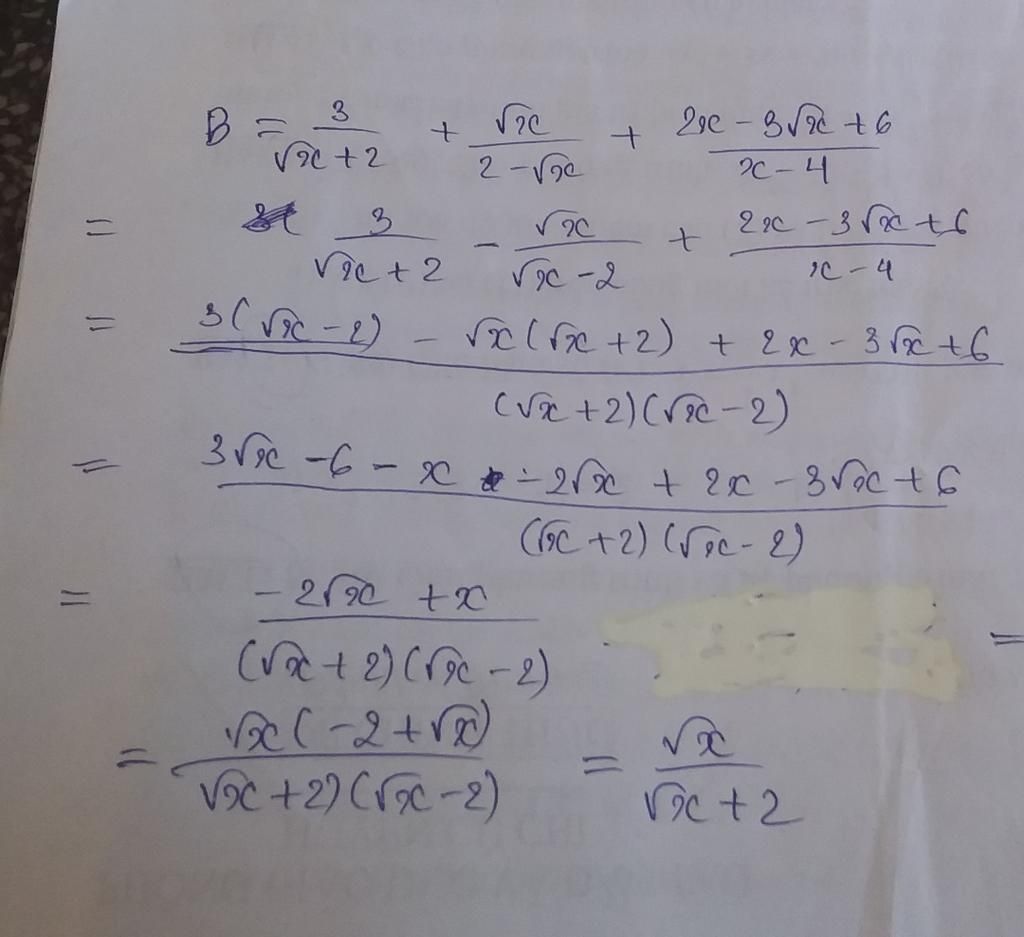 B = 3/(√x + 2) + √x/(2 - √x) + (2x - 3√x + 6)/(x - 4)
= 3/(√x + 2) - √x/(√x - 2) + (2x - 3√x + 6)/(x - 4)
= (3(√x - 2) - √x(√x + 2) + 2x - 3√x + 6)/((√x + 2)(√x - 2))
= (3√x - 6 - x - 2√x + 2x - 3√x + 6)/((√x + 2)(√x - 2))
= (-2√x + x)/((√x + 2)(√x - 2)) =
= √x(-2 + √x)/(√x + 2)(√x - 2) = √x/(√x + 2)